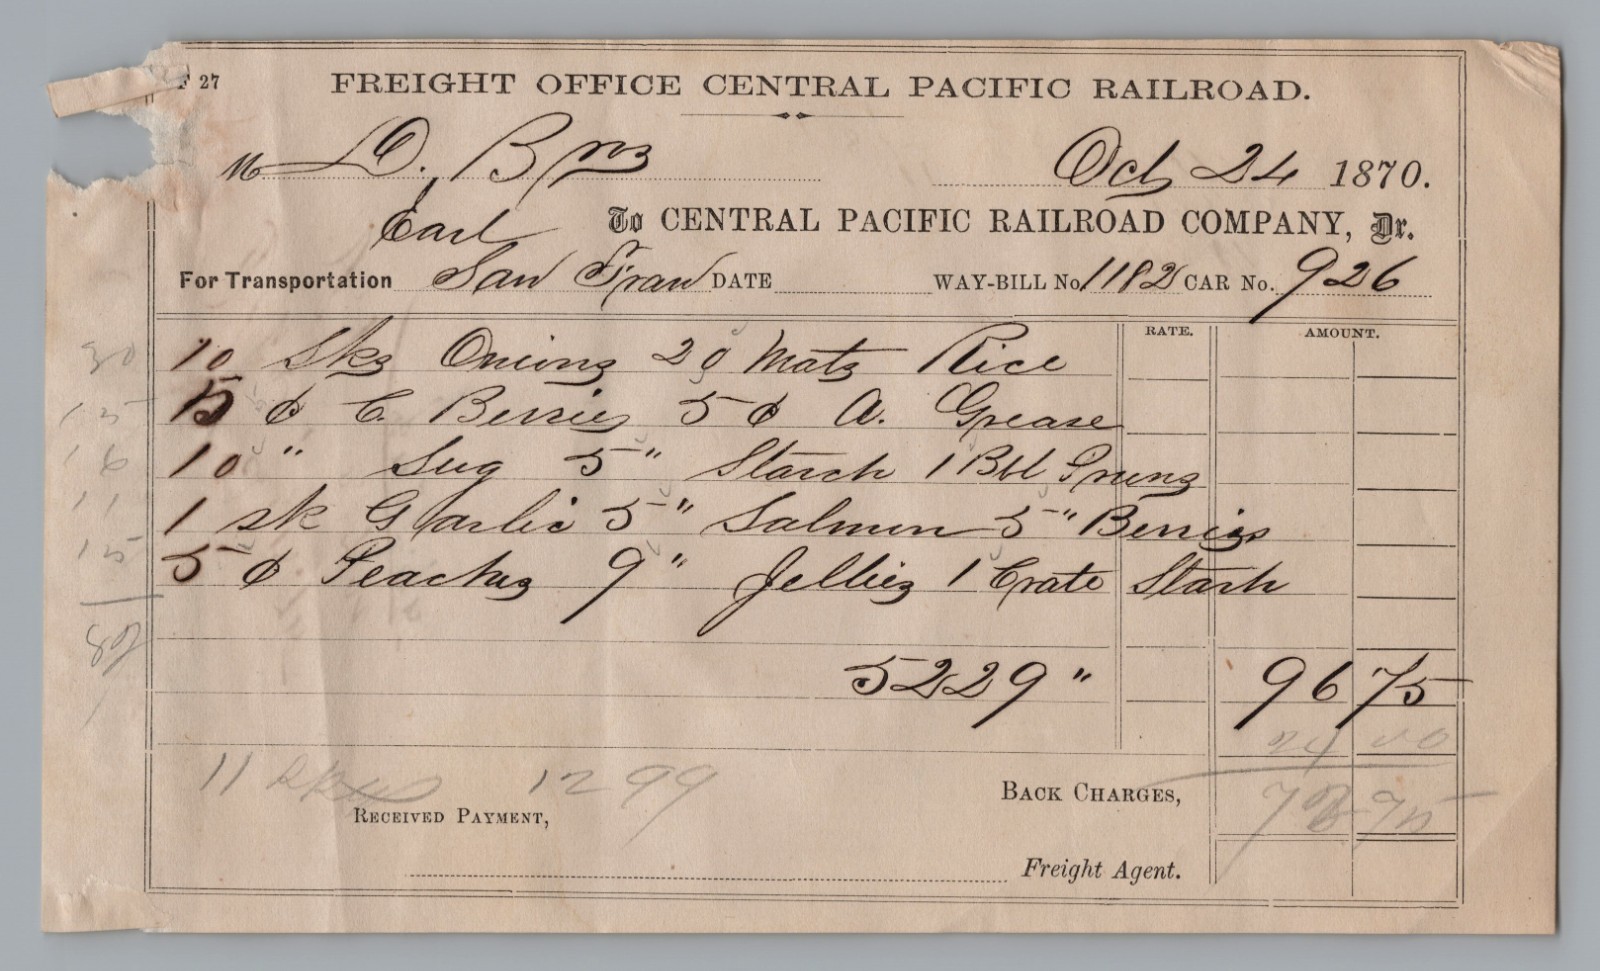 F 27
FREIGHT OFFICE CENTRAL PACIFIC RAILROAD.
M D. Bros Oct 24 1870.
Earl To CENTRAL PACIFIC RAILROAD COMPANY, Dr.
For Transportation San Fran DATE WAY-BILL No 1182 CAR No. 926
RATE. AMOUNT.
30 10 Sks Onions 20 Mats Rice
15 15 ¢ C. Berries 5 ¢ A. Grease
16 10 " Sug 5 " Starch 1 Bbl Pruns
11 1 sk Garlic 5 " Salmon 5 " Berries
15 5 ¢ Peaches 9 " Jellies 1 Crate Starh
5229 " 96 75
24 00
11 1299 BACK CHARGES, 75
RECEIVED PAYMENT,
Freight Agent.